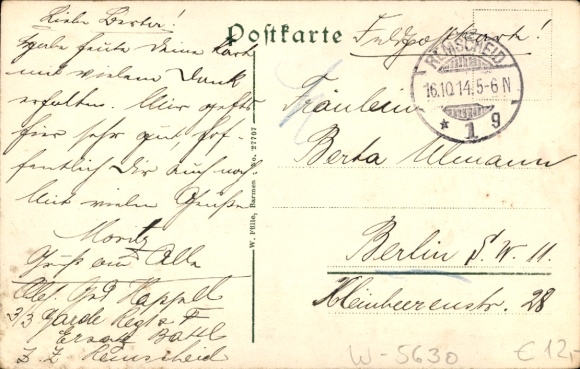 Liebe Berta!
Habe heute deine Karte
mit vielem Dank
erhalten. Mir geht's
hier sehr gut, hof-
fentlich Dir auch noch.
Mit vielen Grüßen
Moritz
Gruß an Alle
Abs.
3/3 Garde Regts
Ersatz Batl
Z. Z. Remscheid
Postkarte
Feldpostkarte!
REMSCHEID
16.10.14.5-6N
* 1 g
Fräulein
Berta Ulmann
Berlin S.W. 11.
Kleinbeerenstr. 28
W. Fülle, Barmen No. 27707
W-5630
€12,-